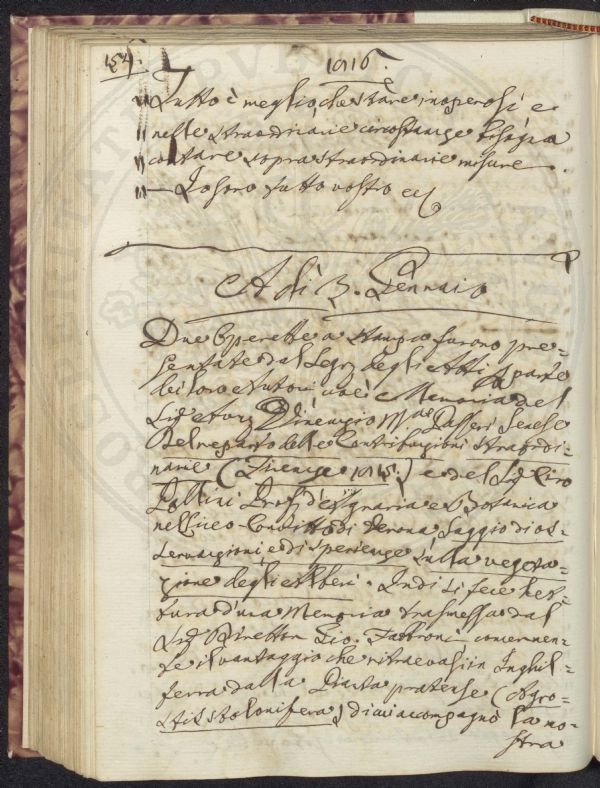 154.
1816.
" Tutto è meglio, che stare inoperosi, e
" nelle straordinarie circostanze bisogna
" contare sopra straordinarie misure.
" — Io sono tutto vostro ec.
A dì 3. Gennaio
Due Operette a stampa furono pre=
sentate dal Segr. degli Atti, p parte
dei loro Autori, cioè Memoria del
Sig.
Del reparto delle Contribuzioni straordi=
narie (Firenze 1815.) e del Sig. Ciro
Pollini Prof. d'Agraria e Botanica
nel Liceo Convitto di Verona, Saggio di os=
servazioni e di sperienze sulla vegeta=
zione degli Alberi. Indi si fece let=
tura d'una Memoria trasmessa dal
Sig. Direttor Gio. Fabbroni, concernen=
te il vantaggio che ritraevasi in Inghil=
terra dalla Pianta pratense (Agro=
stis stolonifera) di cui accompagnò la no=
stra